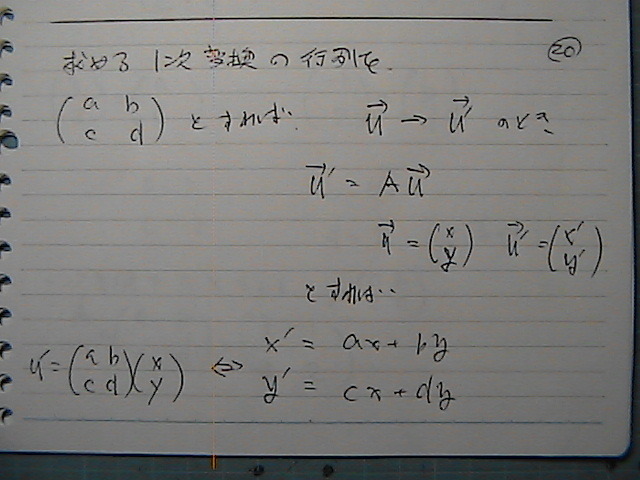 ⑳
求める1次変換の行列を
(a b
c d) とすれば、 u→ → u→' のとき
u→' = A u→
u→ = (x
y) u→' = (x'
y')
とすれば…
u' = (a b
c d)(x
y) ⇔ x' = ax + by
y' = cx + dy